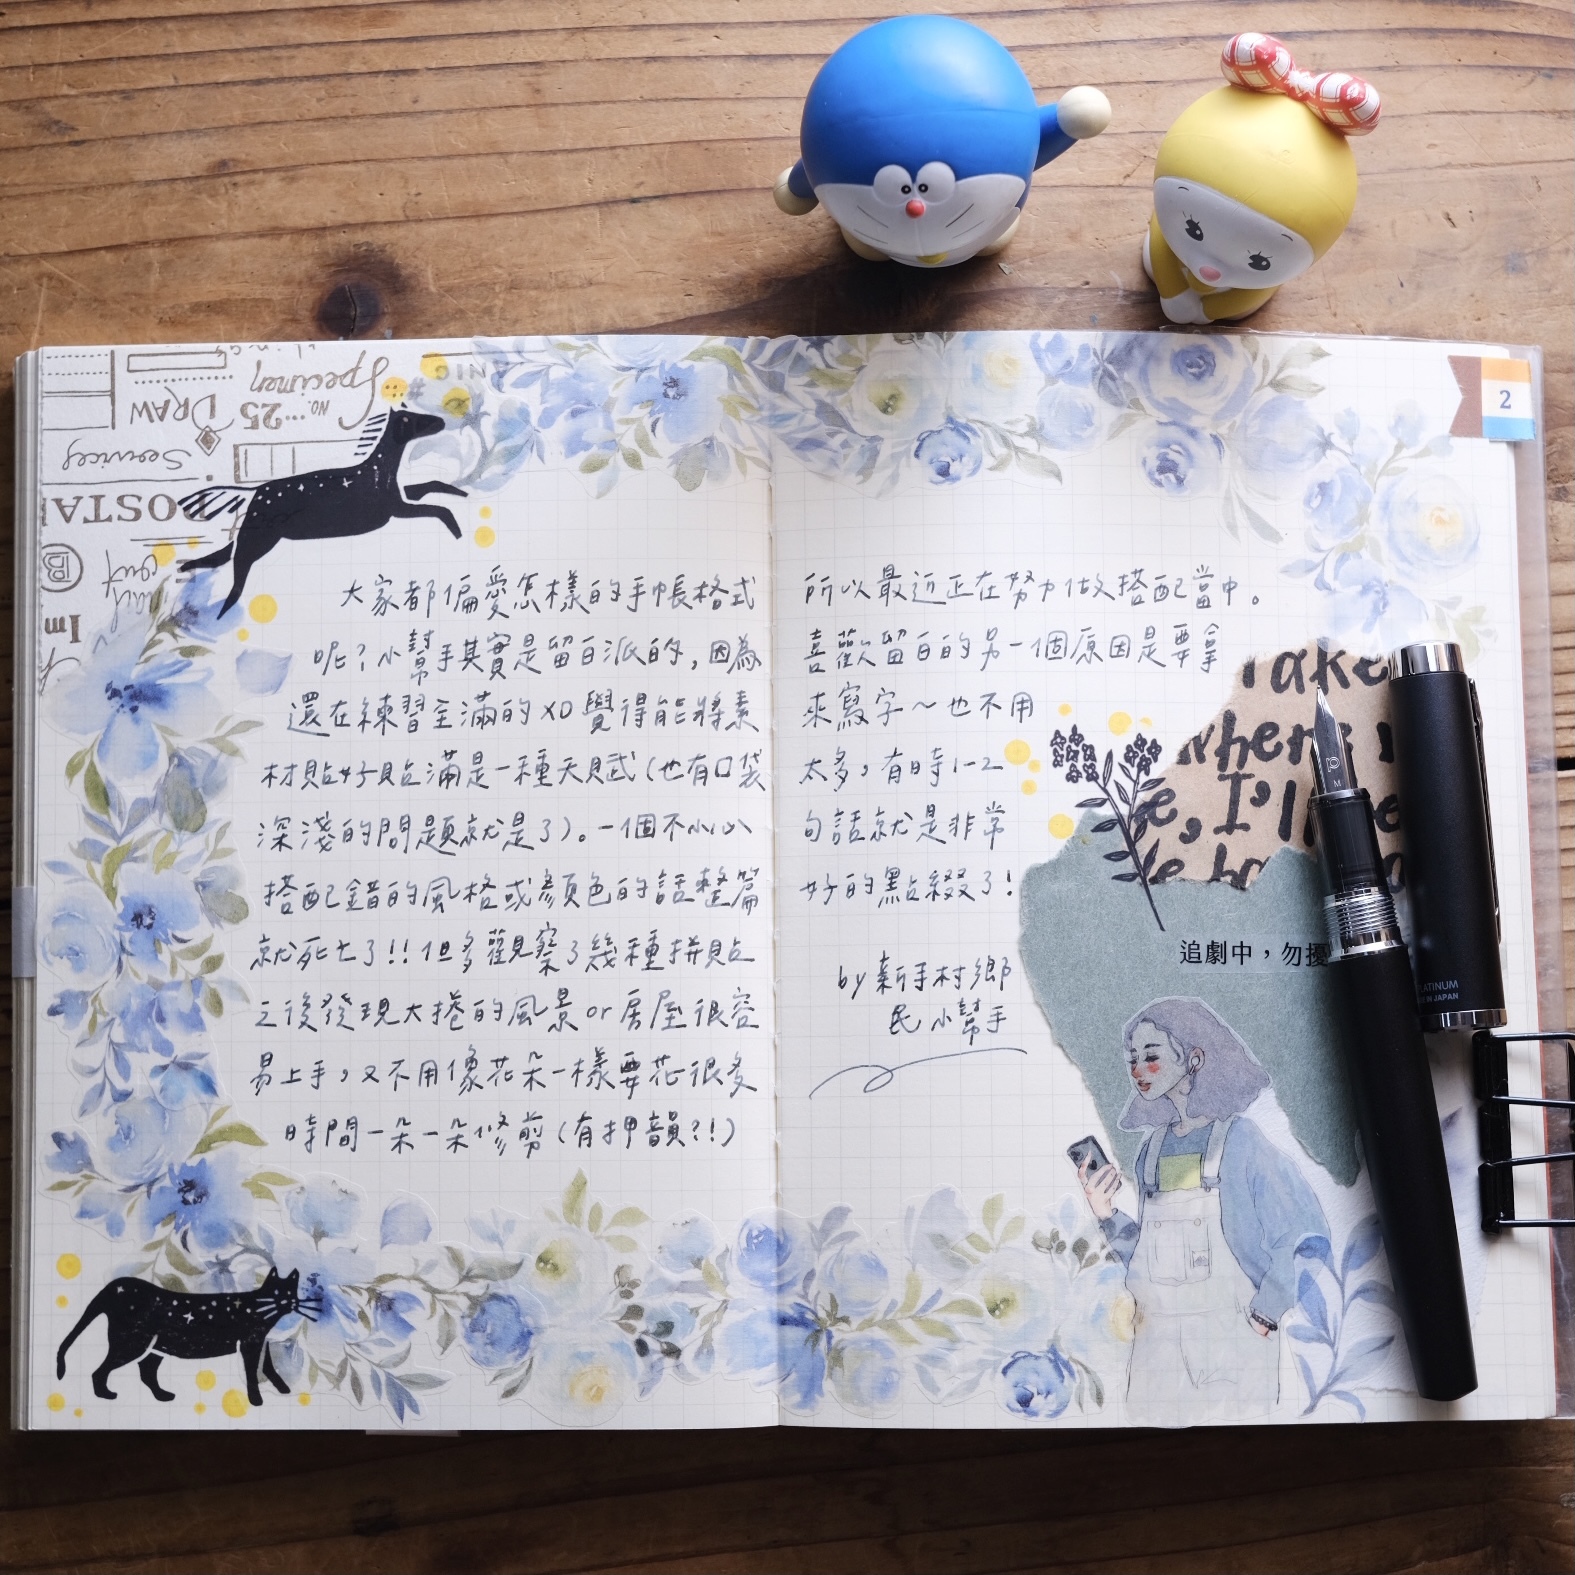 Specimen
NO. 25
DRAW
Services
大家都偏愛怎樣的手帳格式
呢?小幫手其實是留白派的,因為
還在練習至滿的XD覺得能將素
材貼好貼滿是一種天賦(也有口袋
深淺的問題就是了)。一個不小心
搭配錯的風格或顏色的話整篇
就死七了!!但多觀察了幾種拼貼
之後發現大捲的風景or房屋很容
易上手,又不用像花朵一樣要花很多
時間一朵一朵修剪(有押韻?!)
2
所以最近正在努力做搭配當中。
喜歡留白的另一個原因是要拿
來寫字~也不用
太多,有時1-2
句話就是非常
好的點綴了!
by 新手村鄉
民小幫手
追劇中,勿擾
P
M
PLATINUM
MADE IN JAPAN